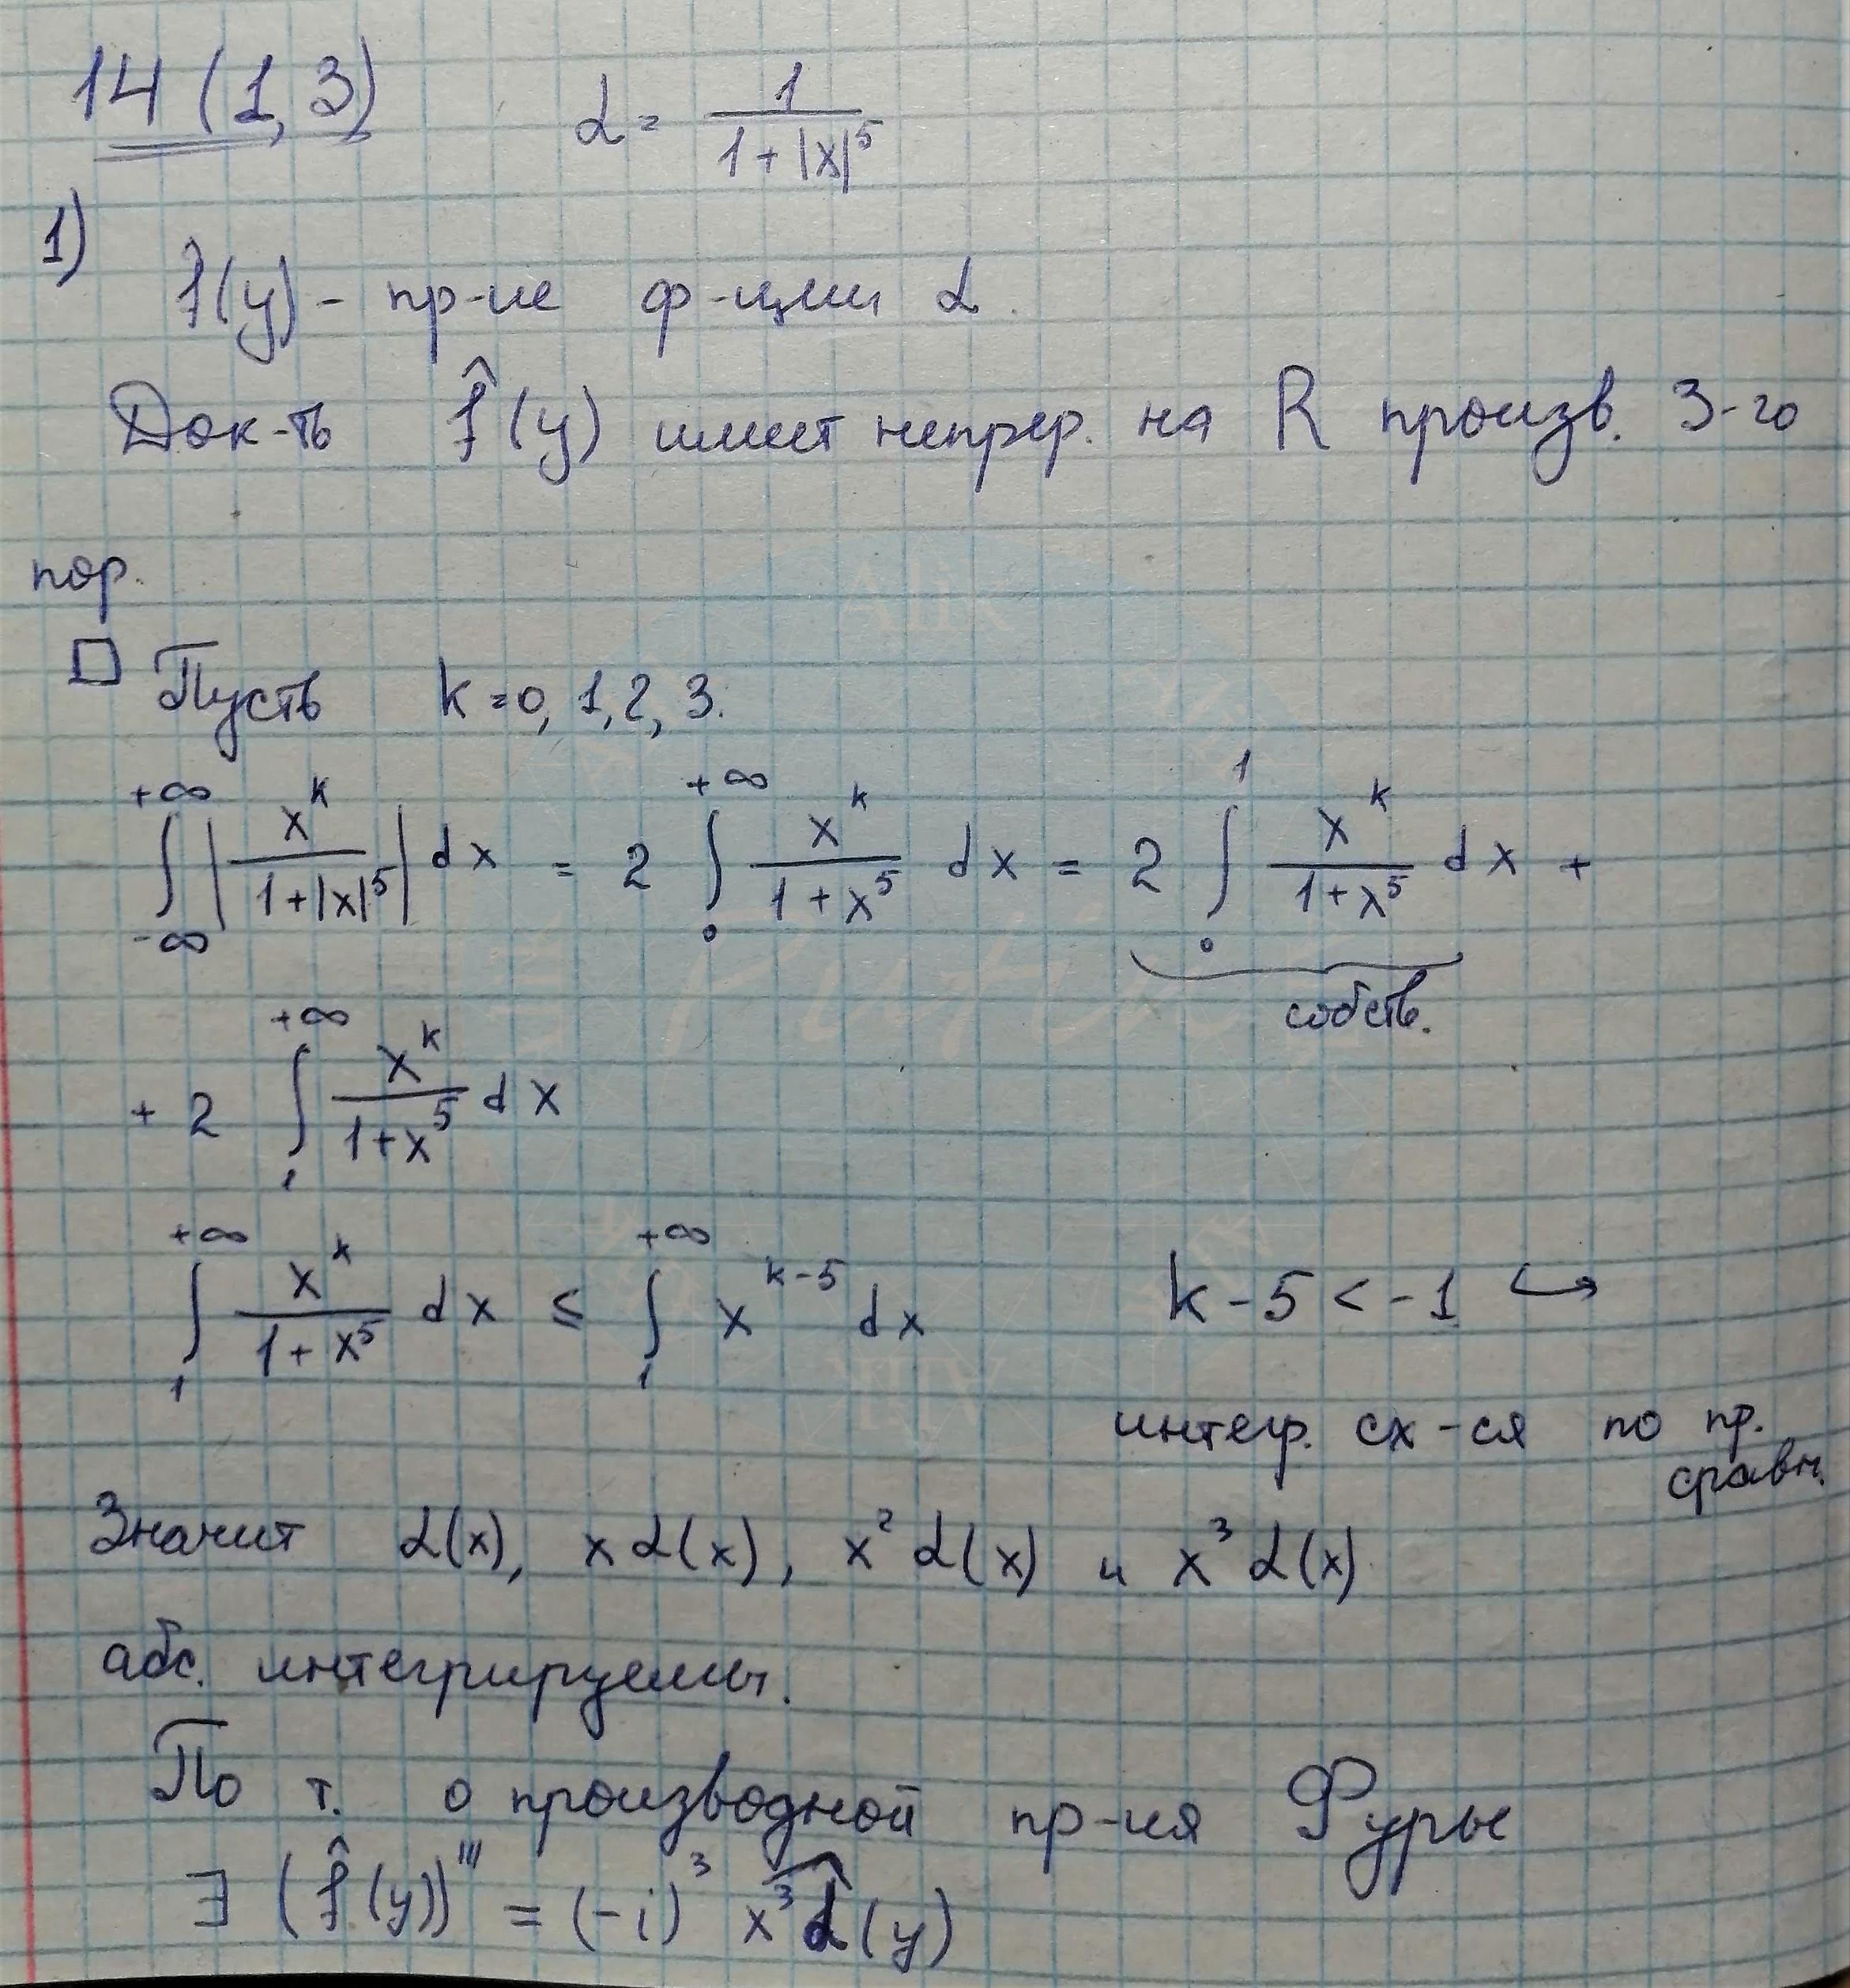 14 (1, 3) α = 1/(1 + |x|^5)
1)
f̂(y) - пр-ие ф-ции α.
Док-ть f̂(y) имеет непрер. на R произв. 3-го
пор.
□ Пусть k = 0, 1, 2, 3.
∫_{-∞}^{+∞} |x^k/(1+|x|^5)| dx = 2 ∫_0^{+∞} x^k/(1+x^5) dx = 2 ∫_0^1 x^k/(1+x^5) dx +
собств.
+ 2 ∫_1^{+∞} x^k/(1+x^5) dx
∫_1^{+∞} x^k/(1+x^5) dx ≤ ∫_1^{+∞} x^{k-5} dx k - 5 < -1 ↪
интегр. сх-ся по пр.
сравн.
Значит α(x), xα(x), x²α(x) и x³α(x)
абс. интегрируемы.
По т. о производной пр-ия Фурье
∃ (f̂(y))''' = (-i)³ \widehat{x³α}(y)